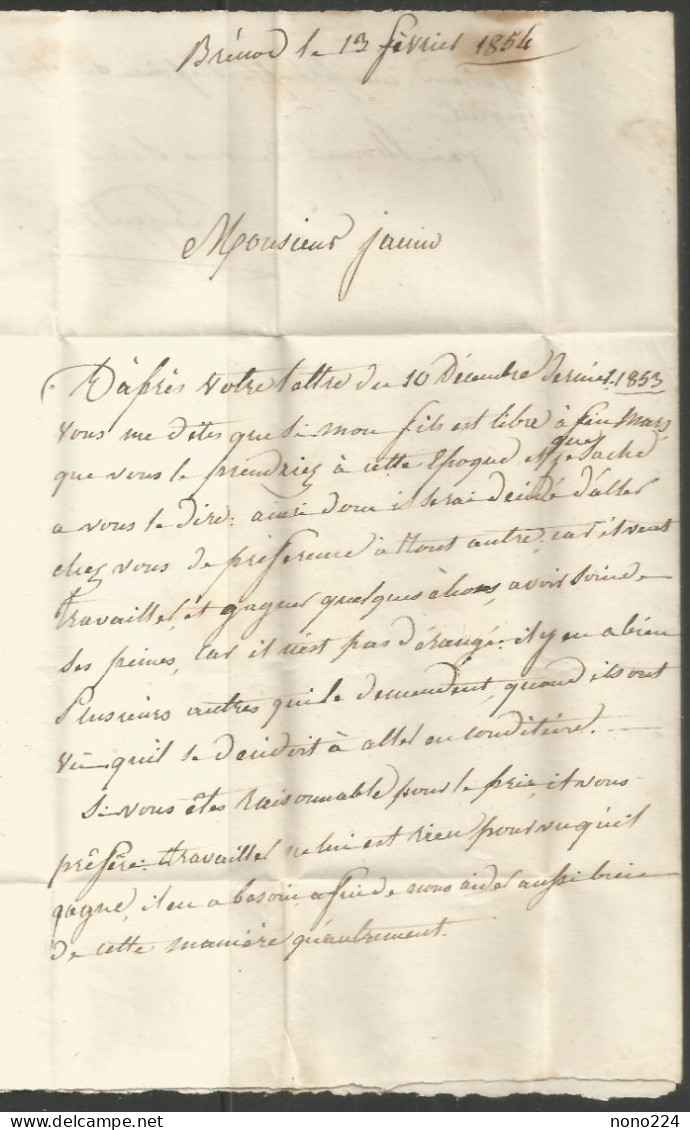 Brénod le 13 février 1854
Monsieur janin
D'après votre lettre du 10 Décembre dernier 1853
vous me dites que si mon fils est libre à fin Mars
que vous le prendriez à cette Epoque, et que je sache
a vous le dire: ainsi donc il serai décidé d'aller
chez vous de préférence à tout autre; car il veut
travailler, et gagner quelques choses, avoir soin de
ses peines, car il n'est pas dérangé: il y en a bien
plusieurs autres qui le demendent, quand ils ont
vû quil se decidoit à aller en conditière.
Si vous êtes raisonnable pour le prix, il vous
préfére: travailler ne lui est rien pourvu qu'il
gagne, il en a besoin afin de nous aider aussi bien
de cette manière qu'autrement.
nono224